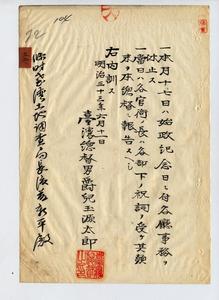 一本月十七日ハ始政紀念日ニ付各廳事務ヲ
休止ス
當日ハ各官衙ノ長ハ各部下ノ祝詞ヲ受ケ其顛
末ヲ本總督ニ報告スヘシ
右内訓ス
明治三十三年六月十一日
臺灣總督男爵兒玉源太郎
臨時臺灣土地調査局長後藤新平殿